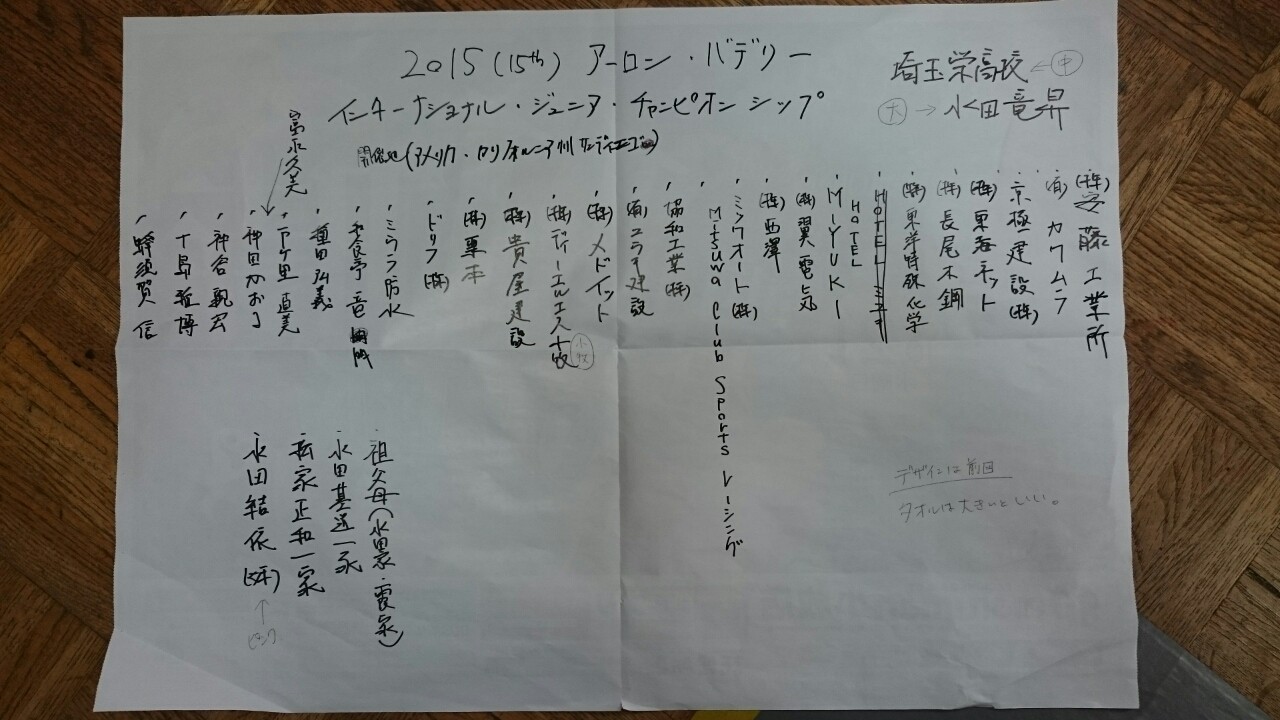 2015(15th) アーロン・バデリー
インターナショナル・ジュニア・チャンピオンシップ
開催地(アメリカ・カリフォルニア州サンディエゴ)
埼玉栄高校 ← 中
大 → 永田竜昇
(株)安藤工業所
(有)カワムラ
京極建設(株)
(株)東海ネット
(株)長尾木鋼
(株)東洋特殊化学
HOTEL
HOTEL
MIYUKI
(株)翼電気
(株)西澤
ミツワオート(株)
Mitsuwa Club Sports レーシング
協和工業(株)
(有)ユライ建設
(株)メドイット
(株)ディーエルエス小牧
小牧
(株)貴屋建設
(株)栗本
ドリフ(株)
ミウラ防水
和食亭 竜
重田弘義
下ヶ里 直美
富永久美
神田かおり
神谷
千島雅博
蜂須賀 信
祖父母(永田家・霞家)
永田基
家正和一家
永田結依(妹)
↑
ピンク
デザインは前回
タオルは大きいといい。